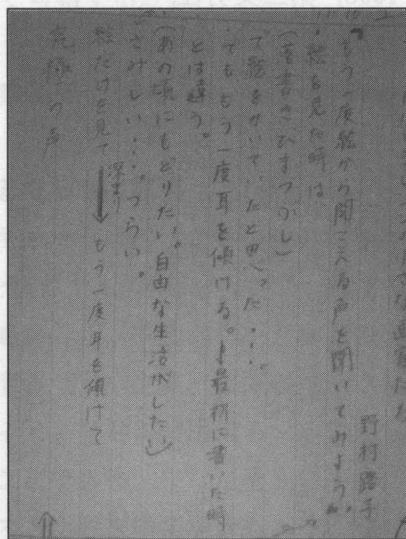 野村路子
『もう一度絵から聞こえる声を聞いてみよう』
・絵を見た時は
(落書きひまつぶし)
で絵をかいていたと思った・・・。
でももう一度耳を傾ける。→最初に書いた時
とは違う。
(あの頃にもどりたい。自由な生活がしたい)
さみしい・・・。つらい。
絵だけを見て→もう一度耳を傾けて
深まり
究極の声